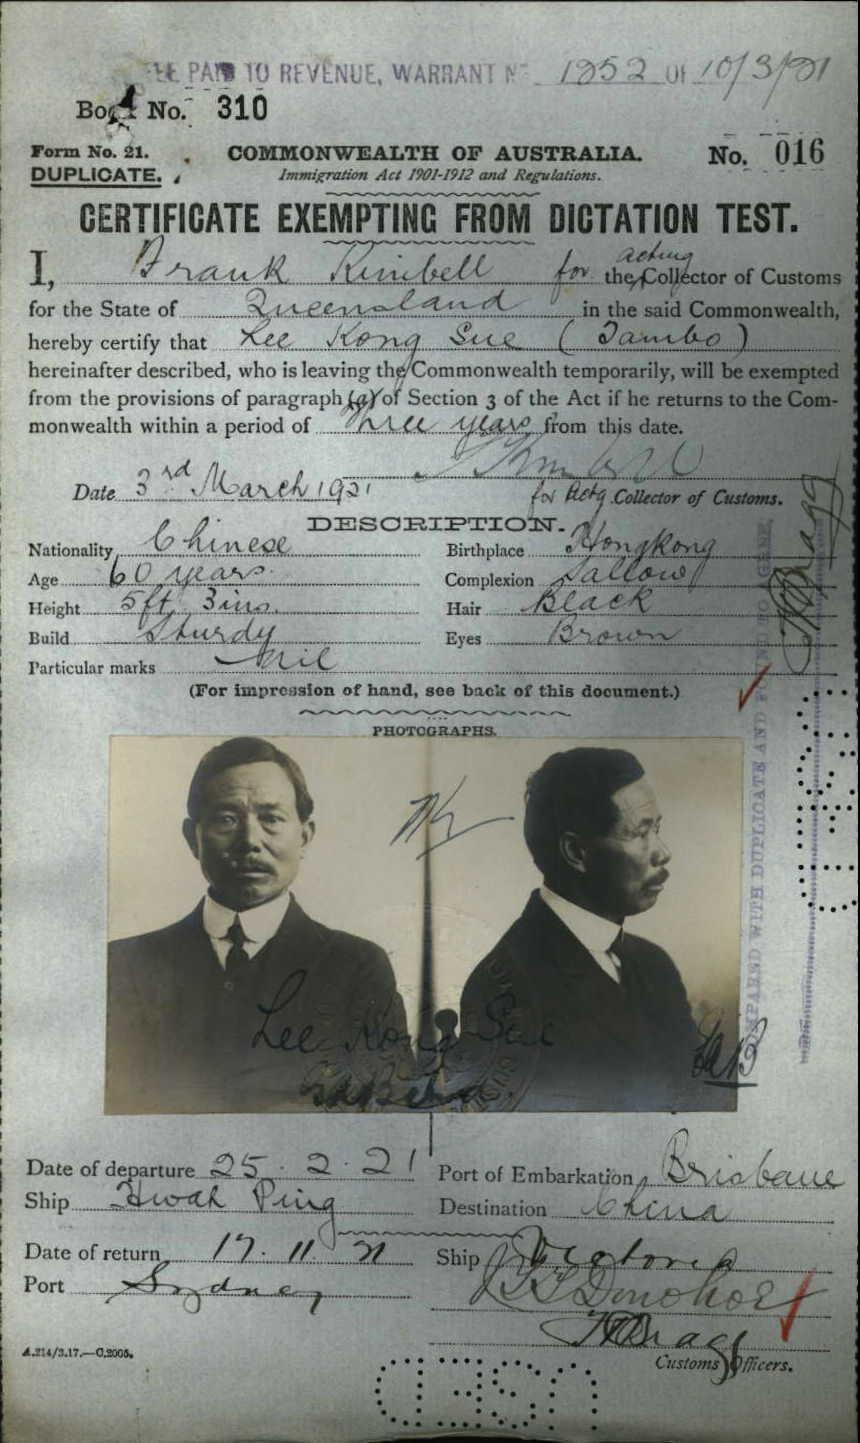 FEE PAID TO REVENUE, WARRANT No 1252 OF 10/3/21
Book No. 310
Form No. 21. COMMONWEALTH OF AUSTRALIA. No. 016
DUPLICATE. Immigration Act 1901-1912 and Regulations.
CERTIFICATE EXEMPTING FROM DICTATION TEST.
I, Frank Kimbell for the acting Collector of Customs
for the State of Queensland in the said Commonwealth,
hereby certify that Lee Kong Sue (Tambo)
hereinafter described, who is leaving the Commonwealth temporarily, will be exempted
from the provisions of paragraph (a) of Section 3 of the Act if he returns to the Com-
monwealth within a period of Three years from this date.
F Kimbell
Date 3rd March 1921 for Actg Collector of Customs.
DESCRIPTION.
Nationality Chinese Birthplace Hongkong
Age 60 years. Complexion Sallow
Height 5ft 3ins. Hair Black
Build Sturdy Eyes Brown
Particular marks nil
(For impression of hand, see back of this document.)
PHOTOGRAPHS.
Lee Kong Sue
COMPARED WITH DUPLICATE AND FOUND TO AGREE
Date of departure 25.2.21 Port of Embarkation Brisbane
Ship Hwah Ping Destination China
Date of return 17.11.21 Ship Victoria
Port Sydney J T T Donohoe
Bragg
A.214/3.17.—C.2005. Customs Officers.
USED